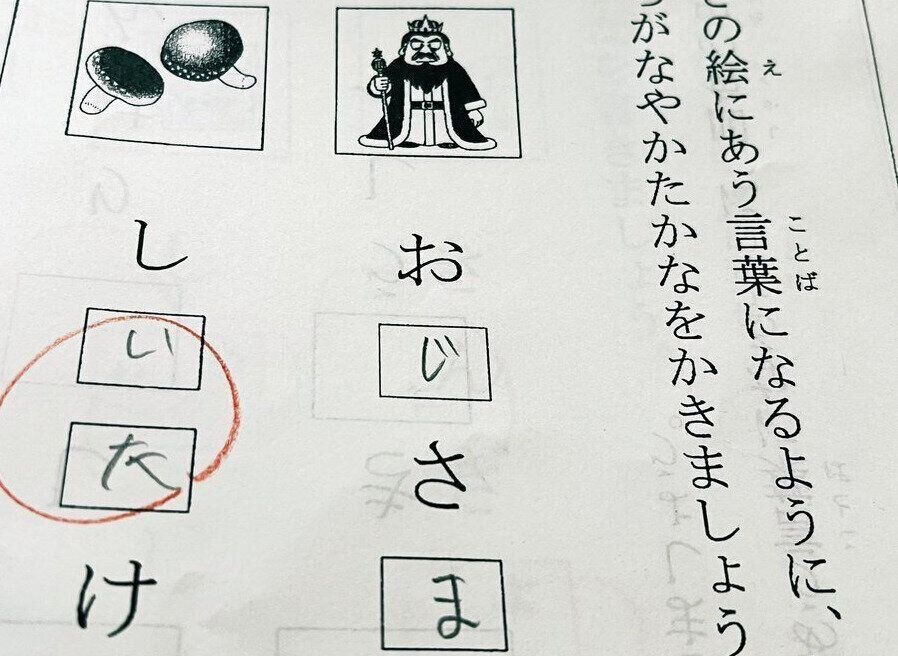 この絵にあう言葉になるように、
え
ことば
らがなやかたかなをかきましょう
おじさま
しいたけ